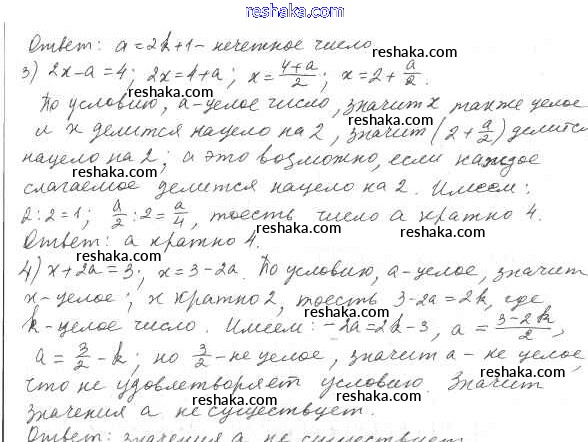 reshaka.com
Ответ: a=2k+1 - нечетное число
reshaka.com
3) 2x-a=4; 2x=4+a; x=\frac{4+a}{2}; x=2+\frac{a}{2}.
reshaka.com reshaka.com
По условию, a-целое число, значит x также целое
reshaka.com
и x делится нацело на 2, значит (2+\frac{a}{2}) делитс
reshaka.com
нацело на 2; а это возможно, если каждое
reshaka.com reshaka.com
слагаемое делится нацело на 2. Имеем:
reshaka.com
2:2=1; \frac{a}{2}:2=\frac{a}{4}, тоесть число a кратно 4.
reshaka.com
Ответ: a кратно 4.
reshaka.com
4) x+2a=3; x=3-2a. По условию, a-целое, значит
reshaka.com
x-целое; x кратно 2, тоесть 3-2a=2k, где
reshaka.com
k-целое число. Имеем: -2a=2k-3, a=\frac{3-2k}{2},
reshaka.com
a=\frac{3}{2}-k; но \frac{3}{2}-не целое, значит a-не целое,
reshaka.com
что не удовлетворяет условию. Значит
reshaka.com
значения a не существует.
reshaka.com reshaka.com
Ответ: значения a не существует